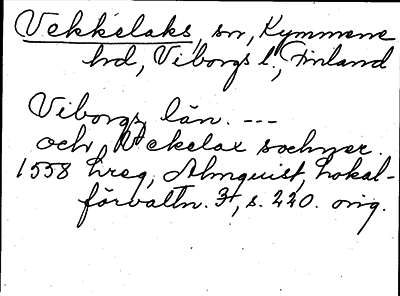 Vekkelaks, sn, Kymmene
hd, Viborgs l., Finland
Viborgs län. ---
och Vekelax sochner.
1558 hreg, Almquist, Lokal-
förvaltn. 3, s. 220. orig.